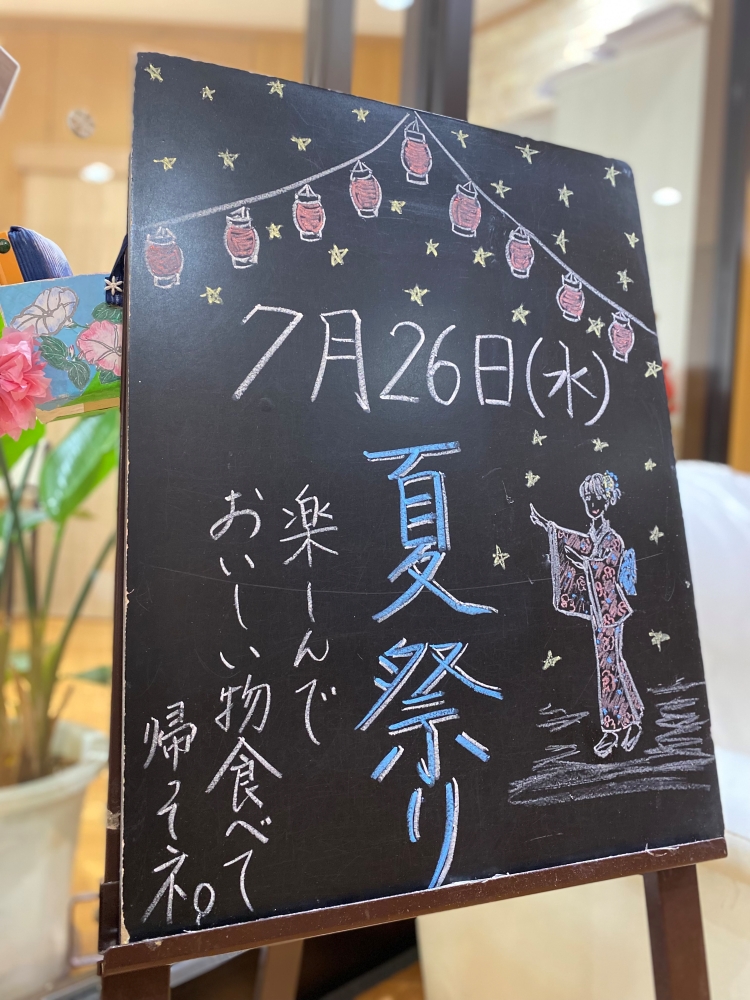 7月26日(水)
夏祭り
楽しんで
おいしい物食べて
帰ってネ。